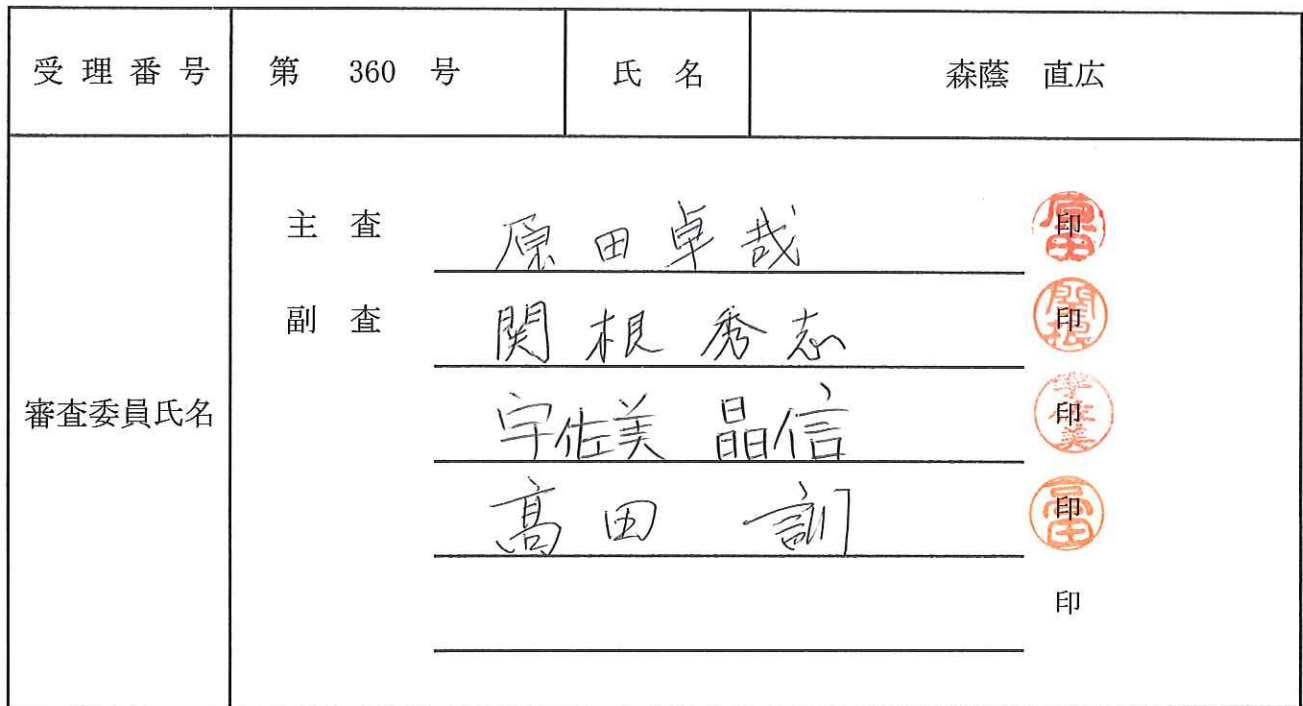 受理番号 第 360 号 氏名 森蔭 直広
審査委員氏名
主査 原田卓哉 印
副査 関根秀志 印
宇佐美 晶信 印
髙田 訓 印
印